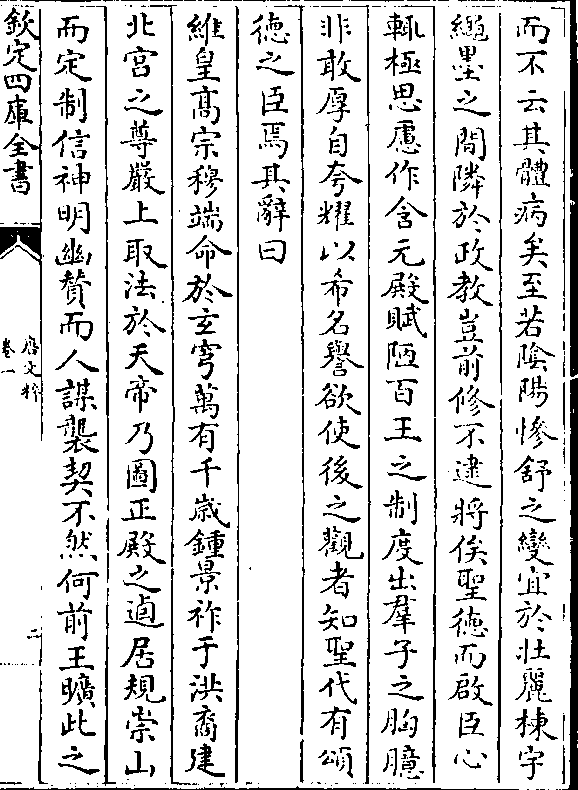 而不云其體病矣至若陰陽慘舒之變宜於壯麗棟宇
繩墨之間隣於政教豈前修不逮將俟聖德而啟臣心
輒極思慮作含元殿賦陋百王之制度出羣子之胸臆
非敢厚自夸耀以希名譽欲使後之觀者知聖代有頌
德之臣焉其辭曰
維皇高宗穆端命於玄穹萬有千歲鍾景祚于洪裔建
北宮之尊嚴上取法於天帝乃圖正殿之逌居規崇山
而定制信神明幽賛而人謀襲契不然何前王曠此之
欽定四庫全書
唐文粹
卷一
二